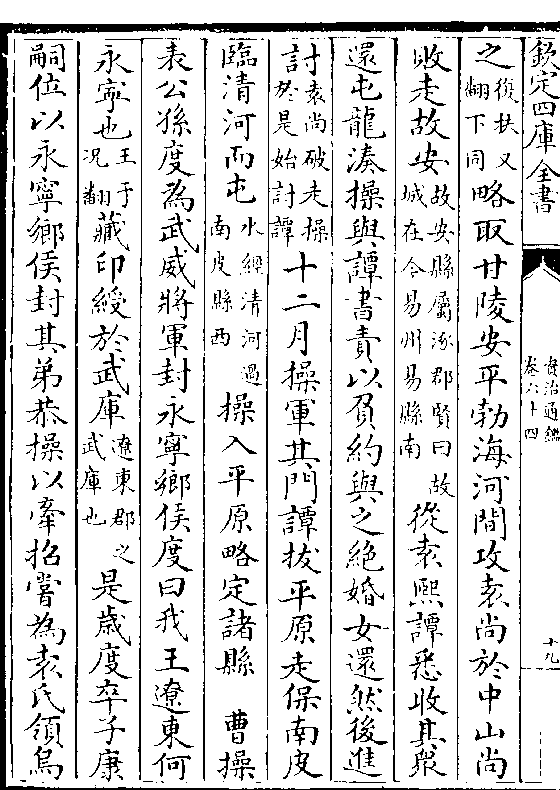 欽定四庫全書
資治通鑑
卷六十四
十九
之復扶又翻下同略取甘陵安平勃海河間攻袁尚於中山尚
敗走故安故安縣屬涿郡賢曰故城在今易州易縣南從袁熙譚悉收其衆
還屯龍湊操與譚書責以負約與之絶婚女還然後進
討袁尚破走操於是始討譚十二月操軍其門譚拔平原走保南皮
臨清河而屯水經清河過南皮縣西操入平原略定諸縣 曹操
表公孫度為武威將軍封永寧鄉侯度曰我王遼東何
永寧也王于况翻藏印綬於武庫遼東郡之武庫也是歲度卒子康
嗣位以永寧鄉侯封其弟恭操以牽招嘗為袁氏領烏